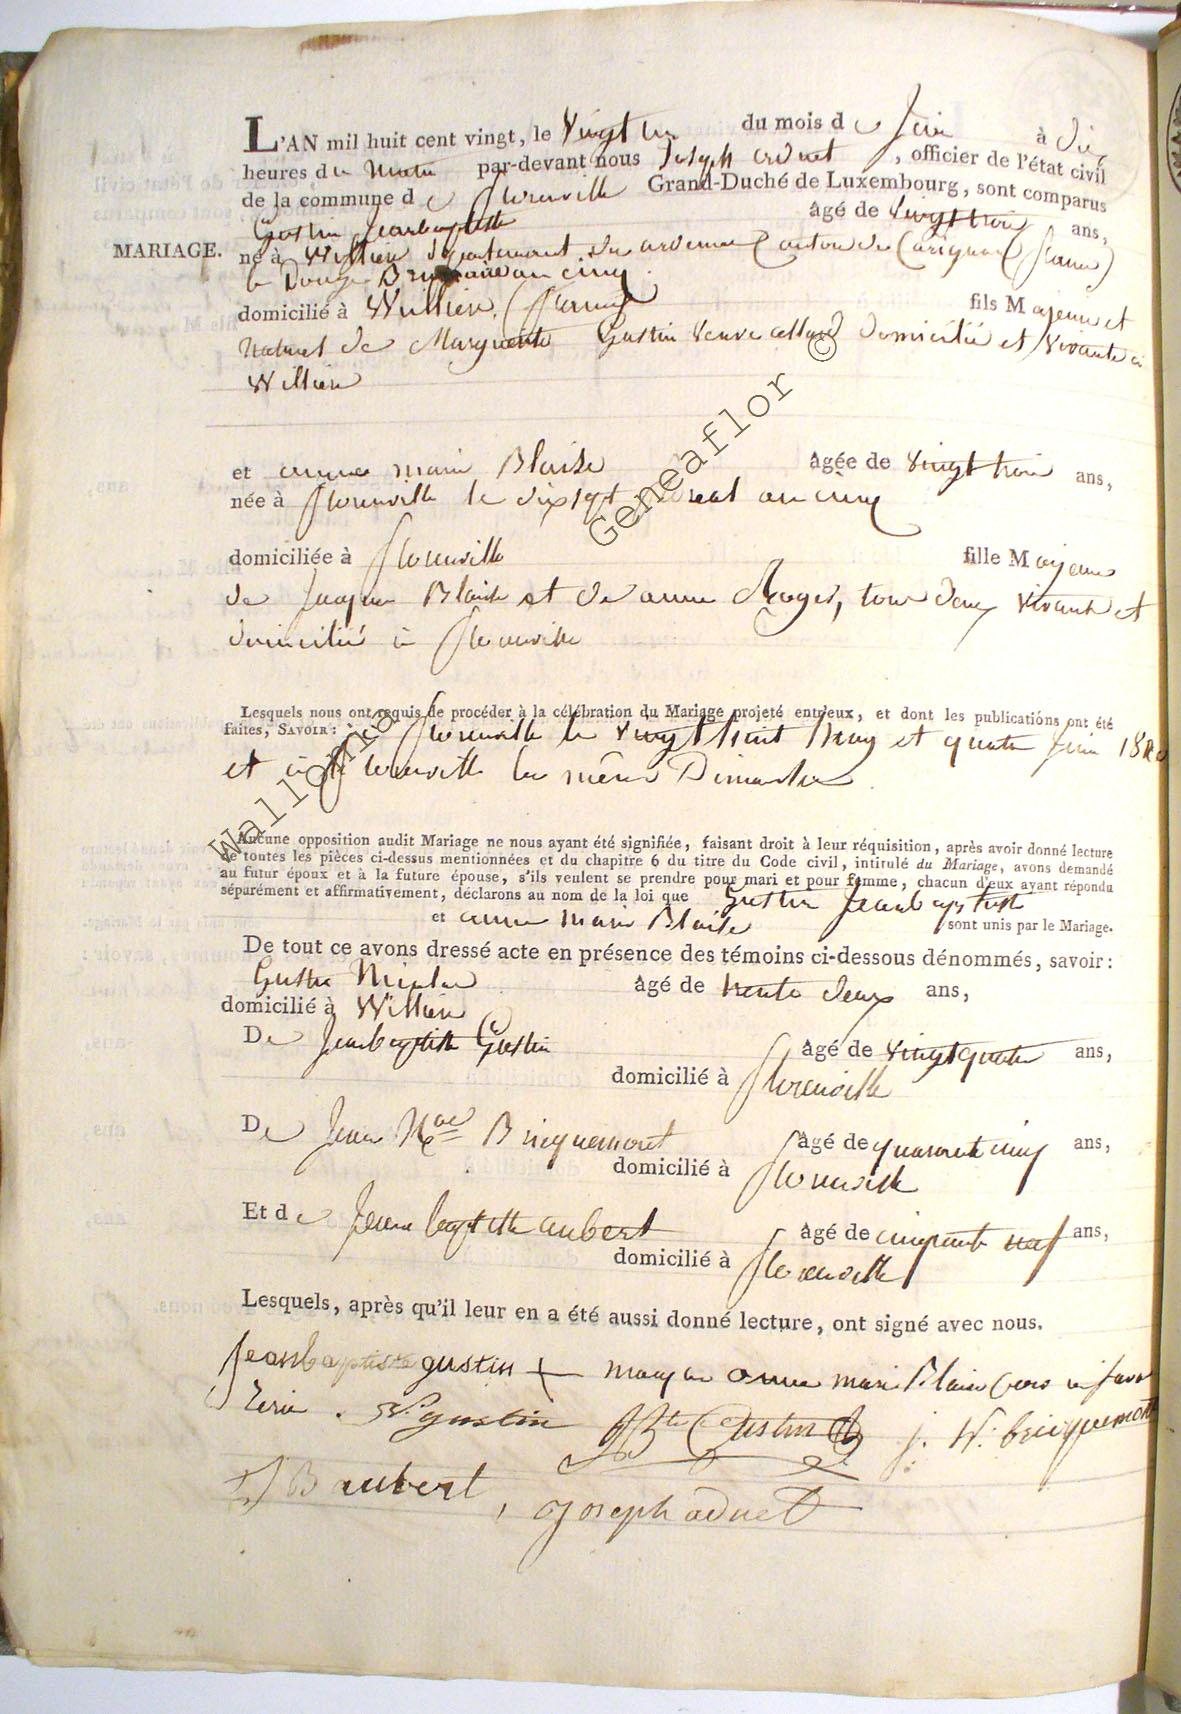 L'AN mil huit cent vingt, le Vingt un du mois de Juin à dix
heures du Matin par-devant nous Joseph adnet, officier de l'état civil
de la commune de florenville Grand-Duché de Luxembourg, sont comparus
Gustin Jeanbaptiste âgé de Vingt trois ans,
MARIAGE. né à Willier département des ardennes Canton de Carignan (france)
le Douze Brumaire an cinq
domicilié à Willier (france) fils Majeur et
Naturel de Marguerite Gustin Veuve domicilié et Vivante à
Willier
et anne marie Blaise âgée de vingt trois ans,
née à florenville le dix sept an cinq
domiciliée à florenville fille Majeure
de Jacques Blaise et de anne Roger, tous deux vivants et
domicilié à florenville
Lesquels nous ont requis de procéder à la célébration du Mariage projeté entr'eux, et dont les publications ont été
faites, SAVOIR : à florenville le vingt huit May et quatre Juin 1820
et à florenville les mêmes Dimanches
Aucune opposition audit Mariage ne nous ayant été signifiée, faisant droit à leur réquisition, après avoir donné lecture
de toutes les pièces ci-dessus mentionnées et du chapitre 6 du titre du Code civil, intitulé du Mariage, avons demandé
au futur époux et à la future épouse, s'ils veulent se prendre pour mari et pour femme, chacun d'eux ayant répondu
séparément et affirmativement, déclarons au nom de la loi que Gustin Jeanbaptiste
et anne marie Blaise sont unis par le Mariage.
De tout ce avons dressé acte en présence des témoins ci-dessous dénommés, savoir :
Gustin Nicolas âgé de trente deux ans,
domicilié à Willier
De Jeanbaptiste Gustin âgé de vingt quatre ans,
domicilié à florenville
De Jean Bricquemont âgé de quarante cinq ans,
domicilié à florenville
Et de Jean baptiste aubert âgé de cinquante neuf ans,
domicilié à florenville
Lesquels, après qu'il leur en a été aussi donné lecture, ont signé avec nous.
Jeanbaptiste gustin + marque anne marie Blaise
gustin JBte Gustin j. N. bricquemont
JB aubert, Joseph adnet
Wallonica Geneaflor ©